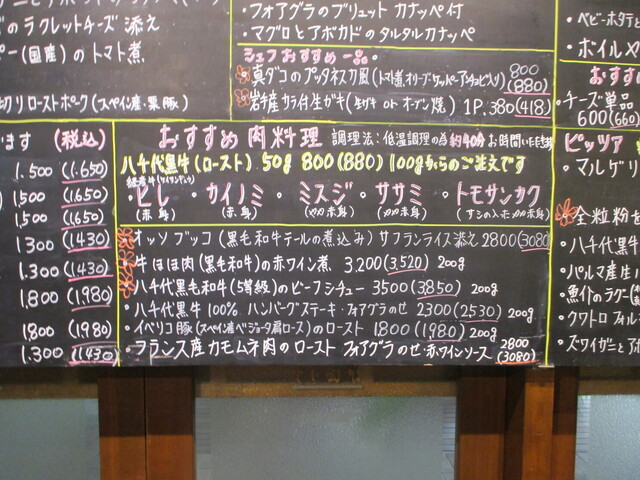 のラクレットチーズ 添え
(国産)の トマト煮
切り ローストポーク(スペイン産・栗豚)
・フォアグラのブリュレ カナッペ付
・マグロとアボカドのタルタルカナッペ
シェフおすすめ一品。
真ダコのプッタネスカ風(トマト煮・オリーブ・ケッパー・アンチョビ入り) 800 (880)
岩手産 カラ付生ガキ(生ガキ or オーブン焼) 1P. 380(418)
・ベビーホタテと
・ボイル
おすす
・チーズ単品
600(660)
ピッツァ
・マルゲリ
全粒粉を
・八千代黒牛
・パルマ産生
・魚介のラグー
・クワトロ フォル
・ズワイガニとア
ます (税込)
1.500 (1.650)
1500 (1650)
1,500 (1650)
1300 (1430)
1.300 (1430)
1,800 (1,980)
1,800 (1,980)
1.300 (1430)
おすすめ 肉料理 調理法:低温調理の為 約40分お時間いただきます
八千代黒牛(ロースト) 50g 800 (880) 100gからのご注文です
・ヒレ (赤身)
・カイノミ (赤身)
・ミスジ (ウデ赤身)
・ササミ (カタ赤身)
・トモサンカク (サシのスネモモ赤身)
・オッソ ブッコ (黒毛和牛テールの煮込み) サフランライス添え 2800 (3080)
・牛ほほ肉(黒毛和牛)の赤ワイン煮 3.200(3,520) 200g
・八千代黒毛和牛(5等級)のビーフシチュー 3500(3850) 200g
・八千代黒牛 100% ハンバーグステーキ・フォアグラのせ 2300(2530) 200g
・イベリコ豚(スペイン産ベジョータ肩ロース)のロースト 1800(1980) 200g
・フランス産カモムネ肉のロースト フォアグラのせ・赤ワインソース 2800 (3080)